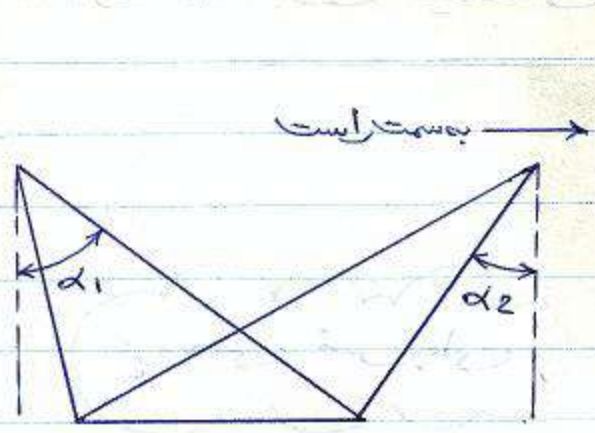 به سمت راست
α1
α2